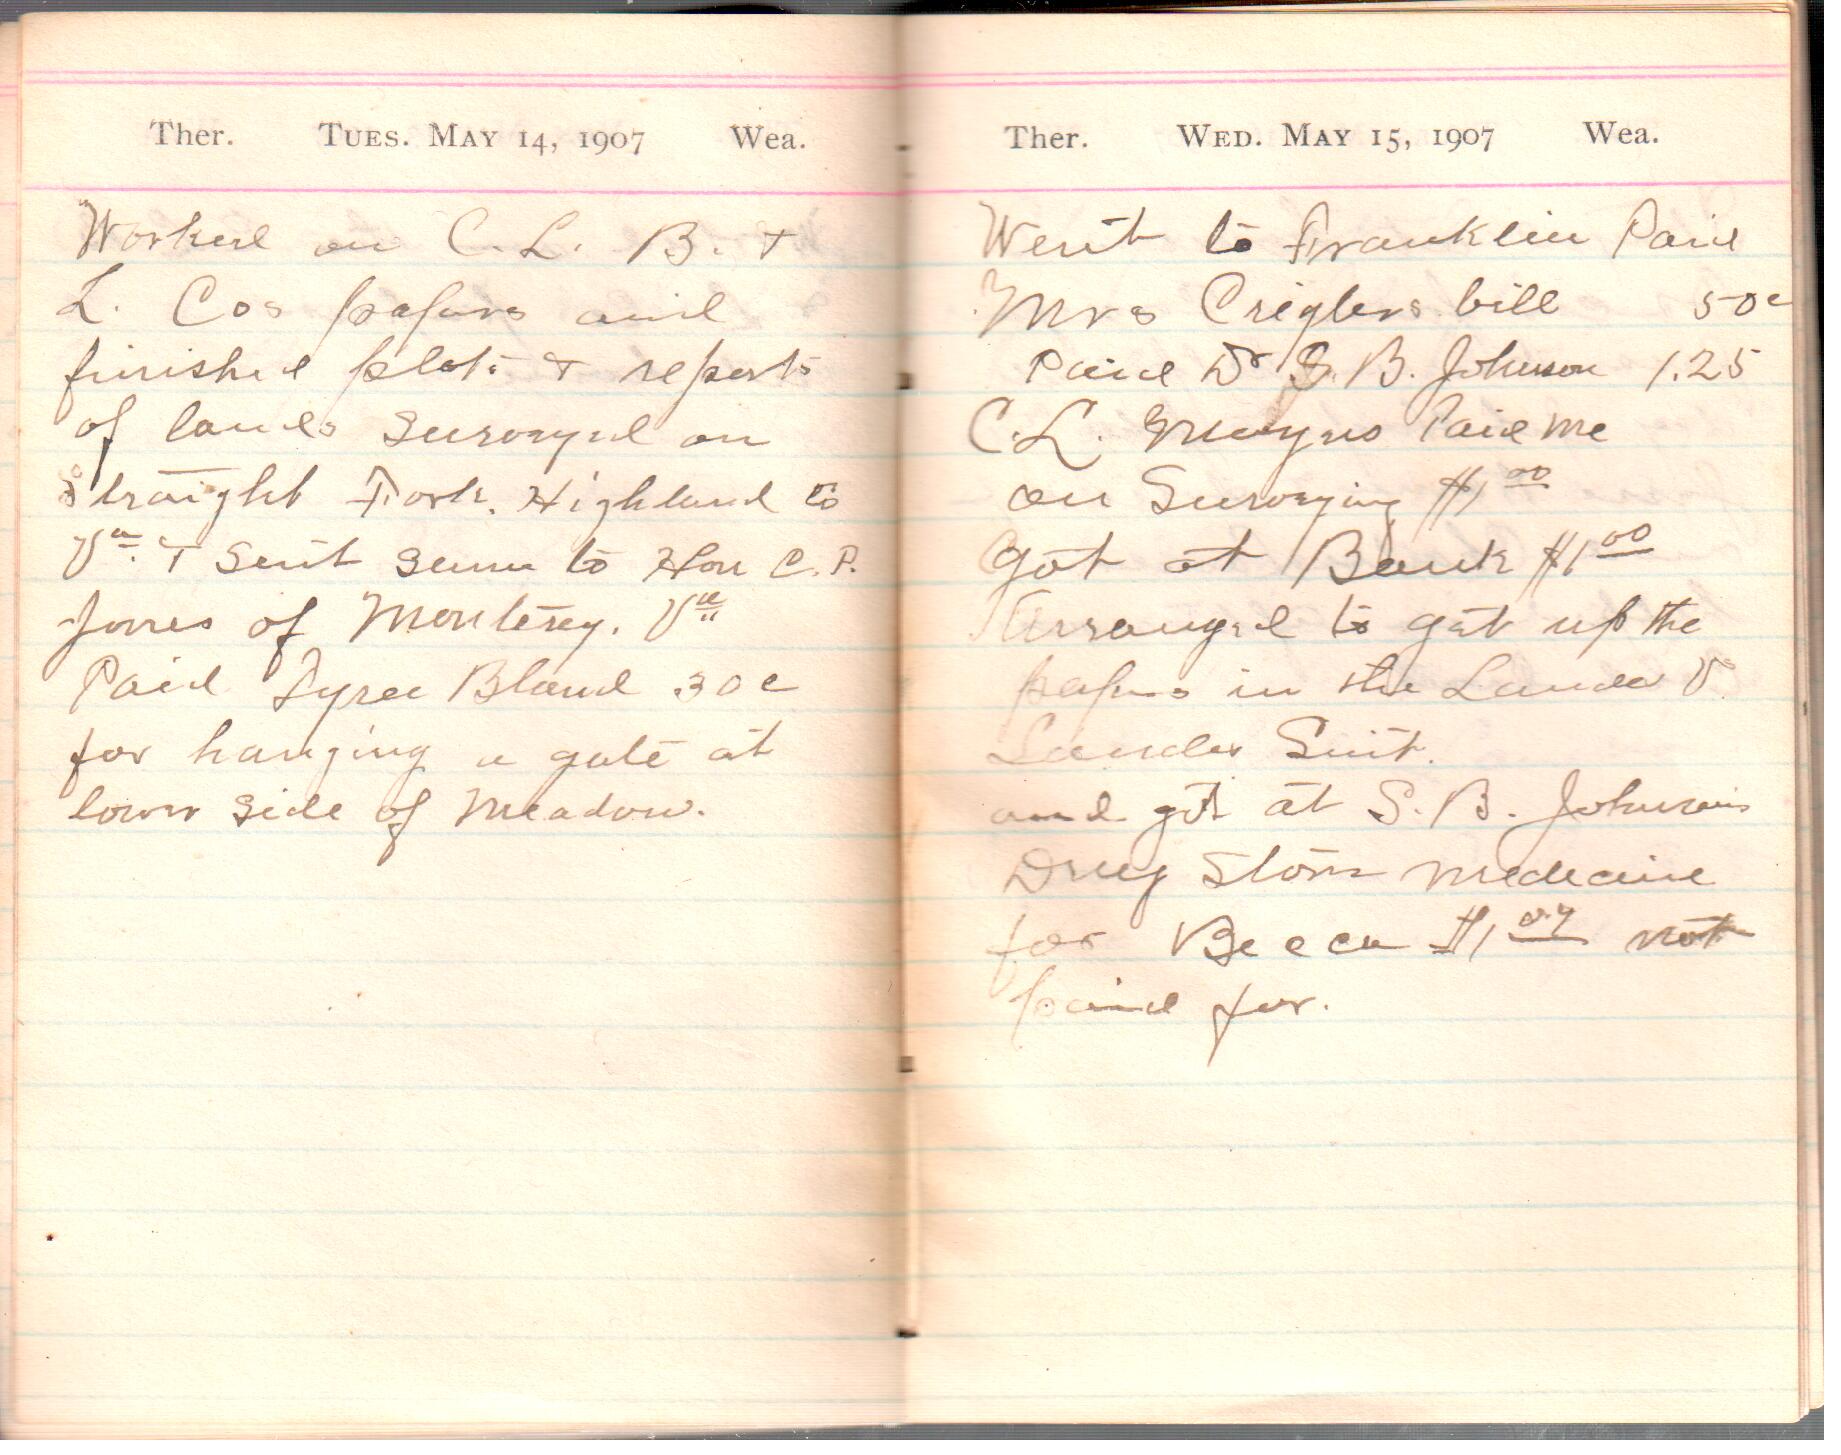 Ther. TUES. MAY 14, 1907 Wea.
Worked on C. L. B. &
L. Cos papers and
finished plots & reports
of lands surveyed on
Straight Fork. Highland Co
Va. & sent same to Hon C. P.
Jones of Monterey. Va
Paid Tyree Bland 30c
for hanging a gate at
lower side of Meadow.
Ther. WED. MAY 15, 1907 Wea.
Went to Franklin Paid
Mrs Criglers bill 50c
Paid Dr S. B. Johnson 1.25
C. L. Moyers Paid me
on Surveying $1 00
got at Bank $1 00
Arranged to get up the
papers in the Lander V.
Lander Suit.
and got at S. B. Johnsons
Drug Store medicine
for Becca $1 not
paid for.